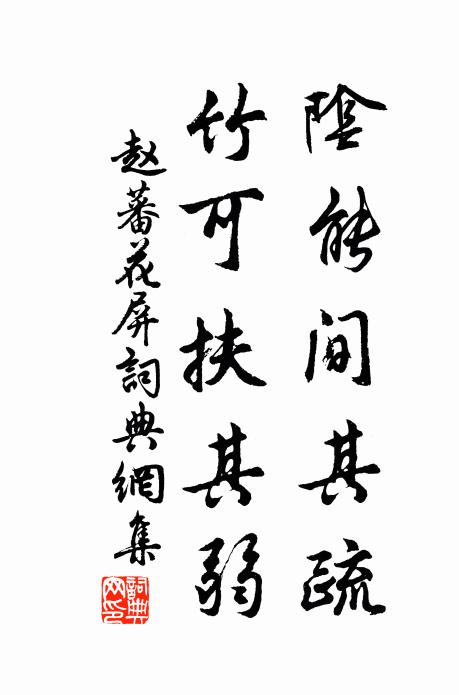 陰能間其疏
竹可扶其弱
赵蕃花屏詞典網集
詞典網印